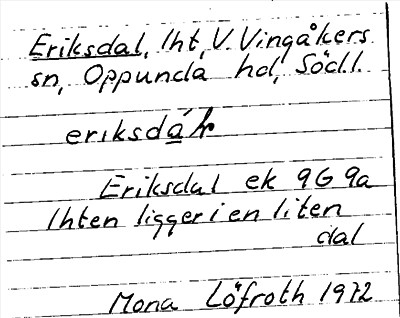 Eriksdal, lht, V. Vingåkers
sn, Oppunda hd, Södl.
eriksdá
Eriksdal ek 9G 9a
lhten ligger i en liten
dal
Mona Löfroth 1972